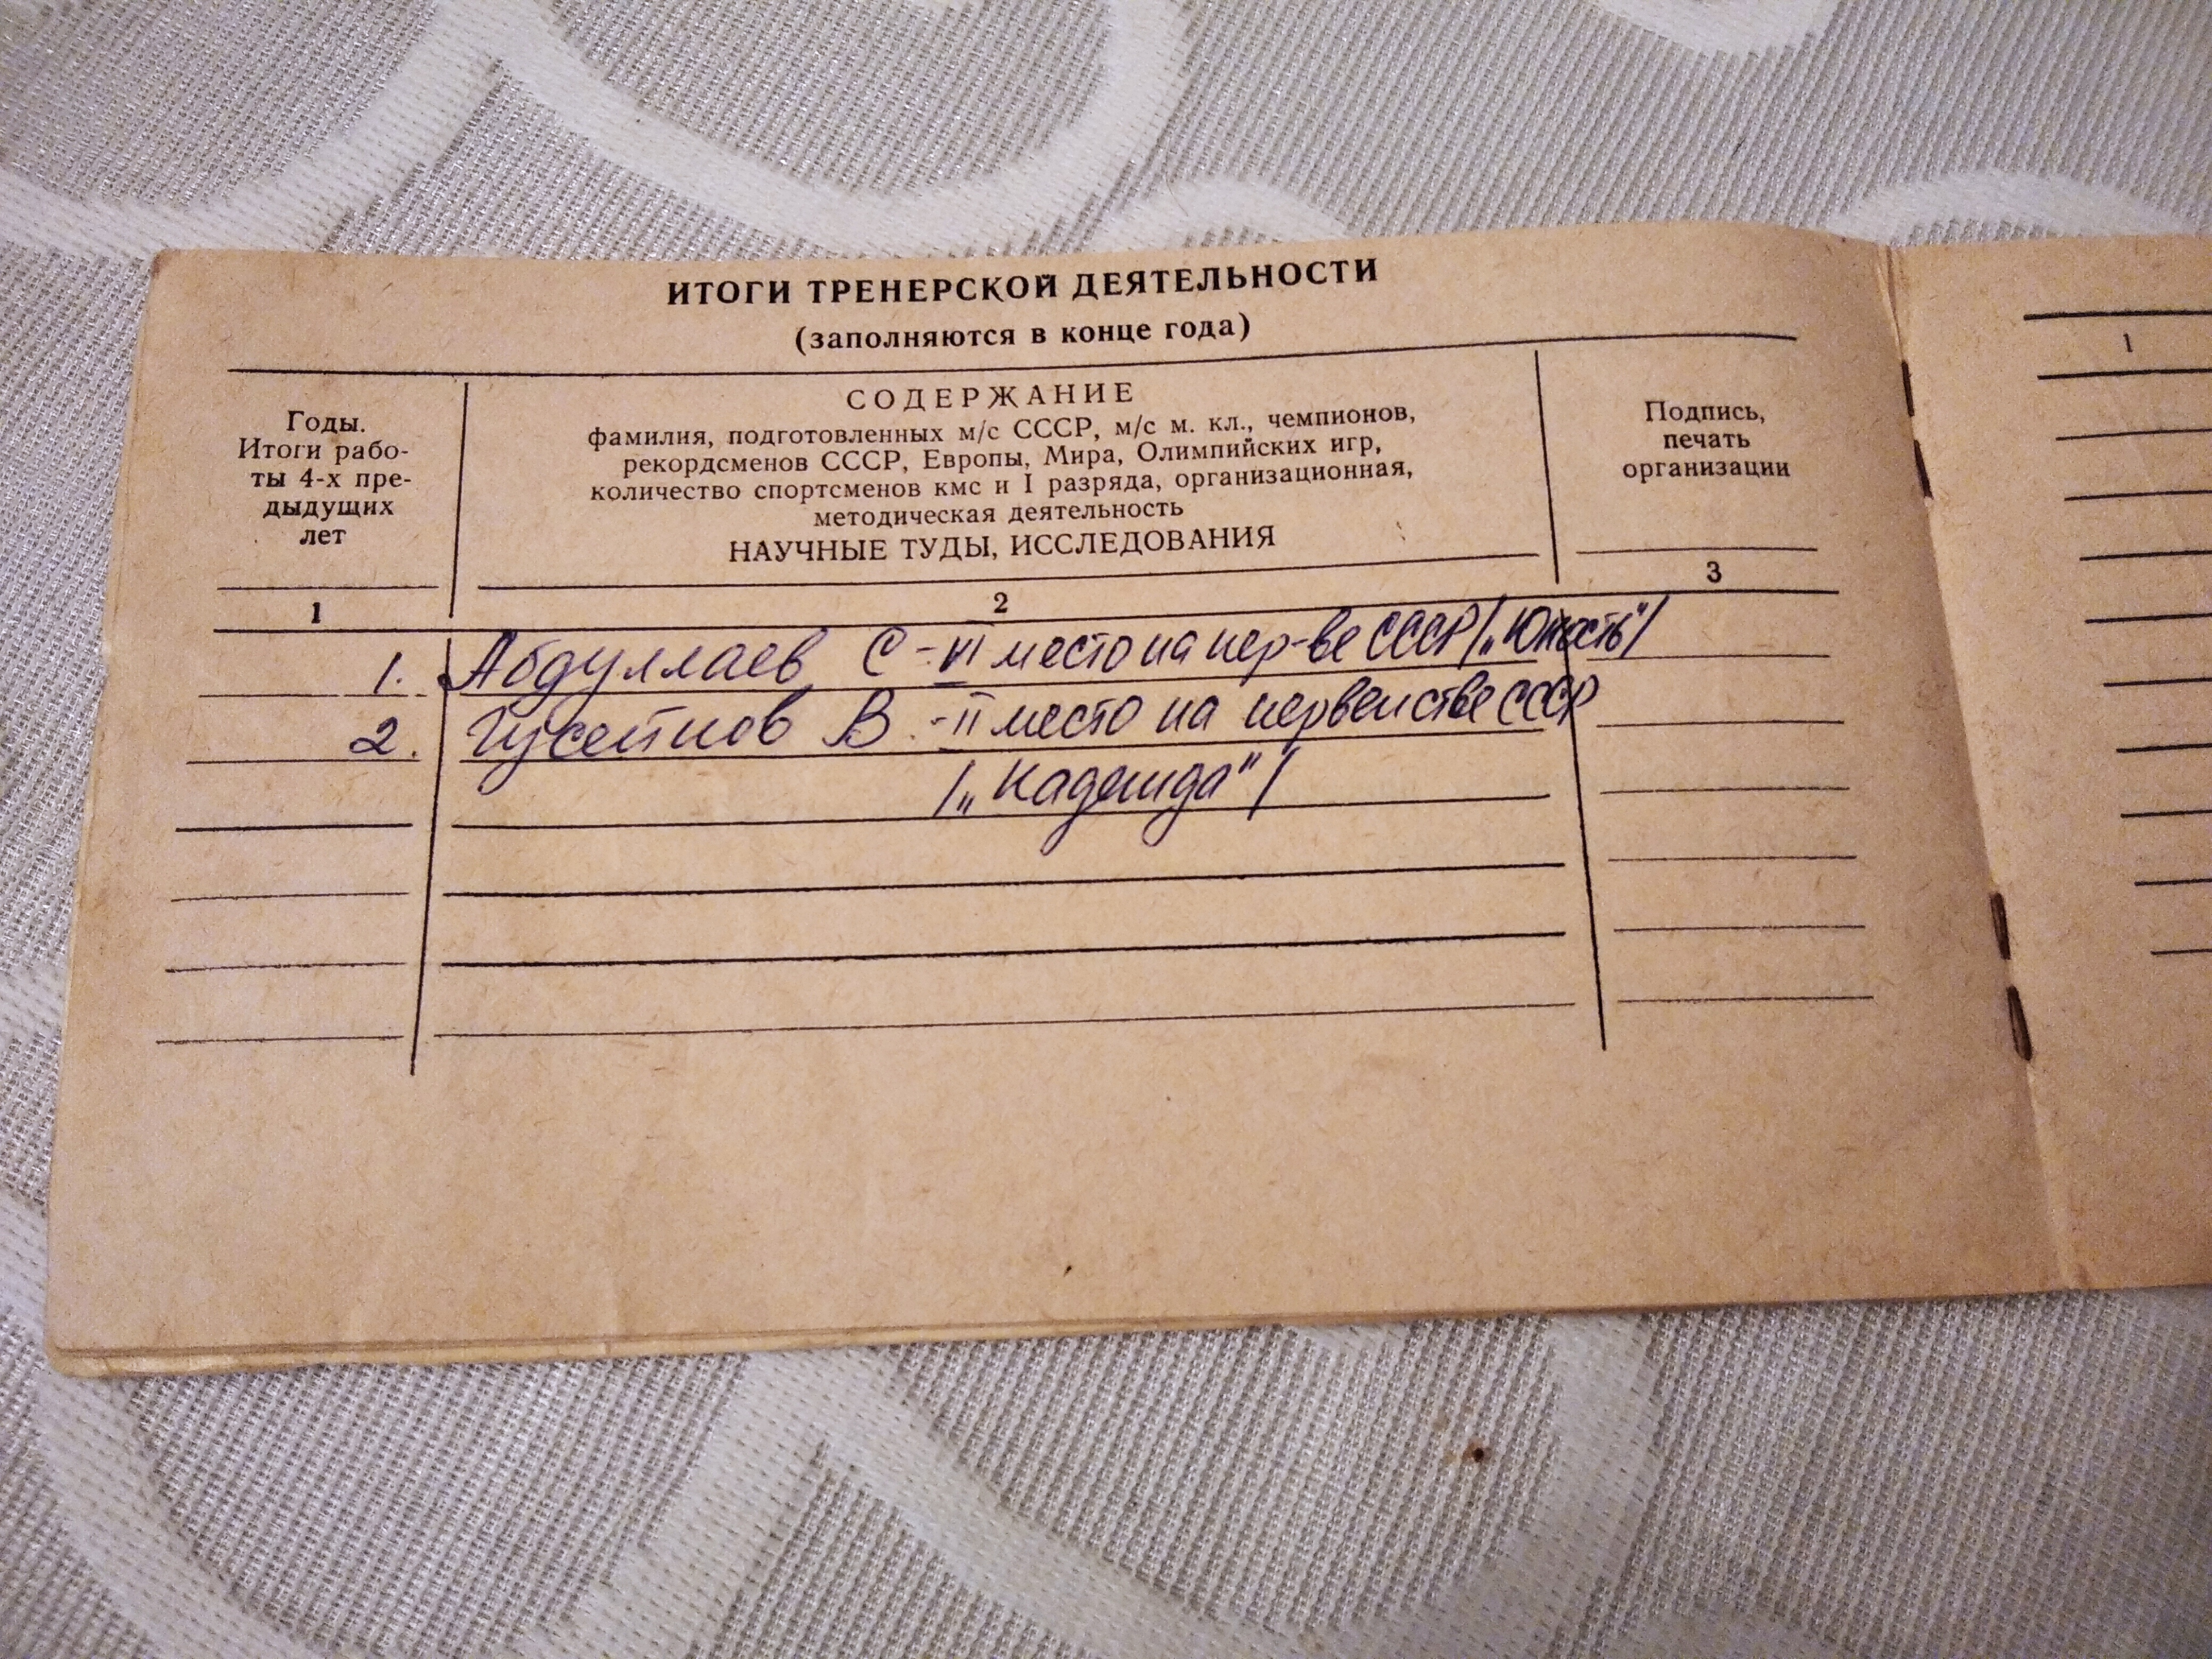 ИТОГИ ТРЕНЕРСКОЙ ДЕЯТЕЛЬНОСТИ
(заполняются в конце года)
Годы.
Итоги рабо-
ты 4-х пре-
дыдущих
лет
СОДЕРЖАНИЕ
фамилия, подготовленных м/с СССР, м/с м. кл., чемпионов,
рекордсменов СССР, Европы, Мира, Олимпийских игр,
количество спортсменов кмс и I разряда, организационная,
методическая деятельность
НАУЧНЫЕ ТУДЫ, ИССЛЕДОВАНИЯ
Подпись,
печать
организации
1 2 3
1. Абдуллаев С - VI место на пер-ве СССР /„Юность"/
2. Гусейнов В. - II место на первенстве СССР
/„Надежда"/
1